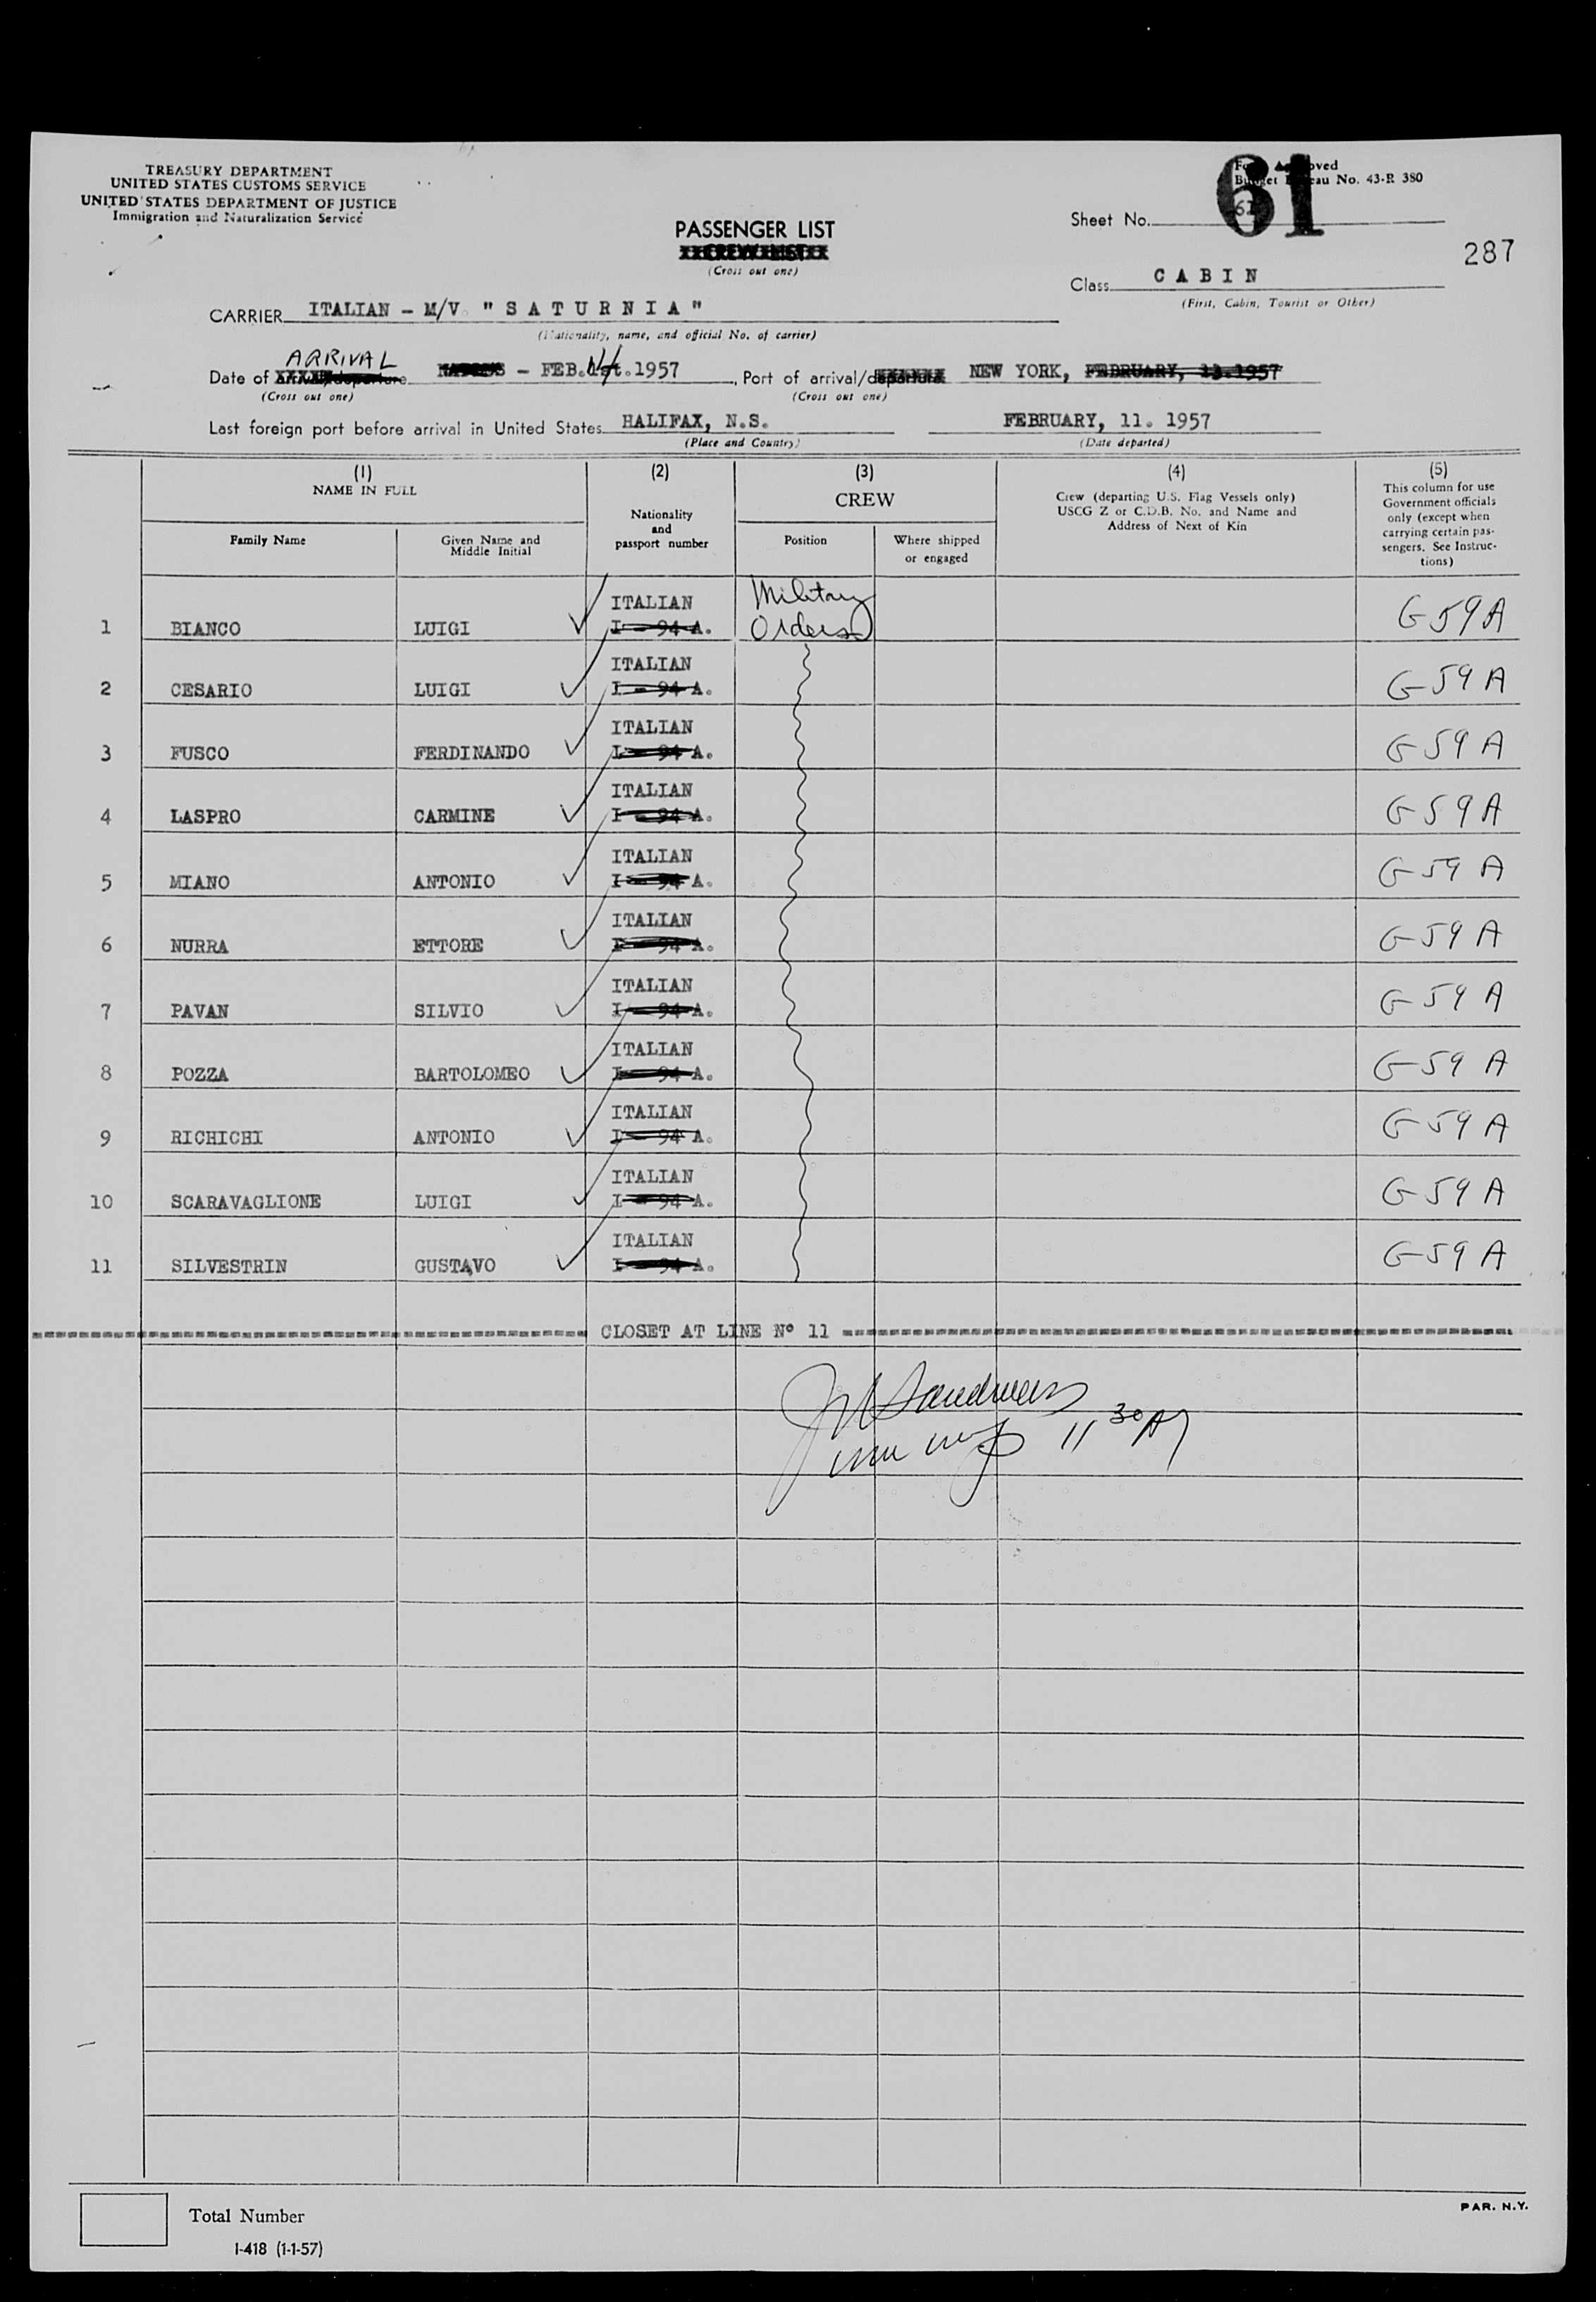 TREASURY DEPARTMENT
UNITED STATES CUSTOMS SERVICE
UNITED STATES DEPARTMENT OF JUSTICE
Immigration and Naturalization Service
Budget Bureau No. 43-R 380
61
Sheet No. 61
287
PASSENGER LIST
CREW LIST
(Cross out one)
Class CABIN
(First, Cabin, Tourist or Other)
CARRIER ITALIAN - M/V. " S A T U R N I A "
(Nationality, name, and official No. of carrier)
ARRIVAL
Date of arrival/departure - FEB. 1957, Port of arrival/departure NEW YORK, FEBRUARY, 13.1957
(Cross out one) (Cross out one)
Last foreign port before arrival in United States HALIFAX, N.S. FEBRUARY, 11. 1957
(Place and Country) (Date departed)
(1) NAME IN FULL
Family Name
Given Name and Middle Initial
(2)
Nationality and passport number
(3) CREW
Position
Where shipped or engaged
(4)
Crew (departing U.S. Flag Vessels only)
USCG Z or C.D.B. No. and Name and
Address of Next of Kin
(5)
This column for use
Government officials
only (except when
carrying certain pas-
sengers. See Instruc-
tions)
1 BIANCO LUIGI ITALIAN I - 94 A. Military Orders G-59A
2 CESARIO LUIGI ITALIAN I - 94 A. G-59A
3 FUSCO FERDINANDO ITALIAN I - 94 A. G-59A
4 LASPRO CARMINE ITALIAN I - 94 A. G-59A
5 MIANO ANTONIO ITALIAN I - 94 A. G-59A
6 NURRA ETTORE ITALIAN I - 94 A. G-59A
7 PAVAN SILVIO ITALIAN I - 94 A. G-59A
8 POZZA BARTOLOMEO ITALIAN I - 94 A. G-59A
9 RICHICHI ANTONIO ITALIAN I - 94 A. G-59A
10 SCARAVAGLIONE LUIGI ITALIAN I - 94 A. G-59A
11 SILVESTRIN GUSTAVO ITALIAN I - 94 A. G-59A
CLOSET AT LINE Nº 11
11 30 A
Total Number
I-418 (1-1-57)
PAR. N.Y.